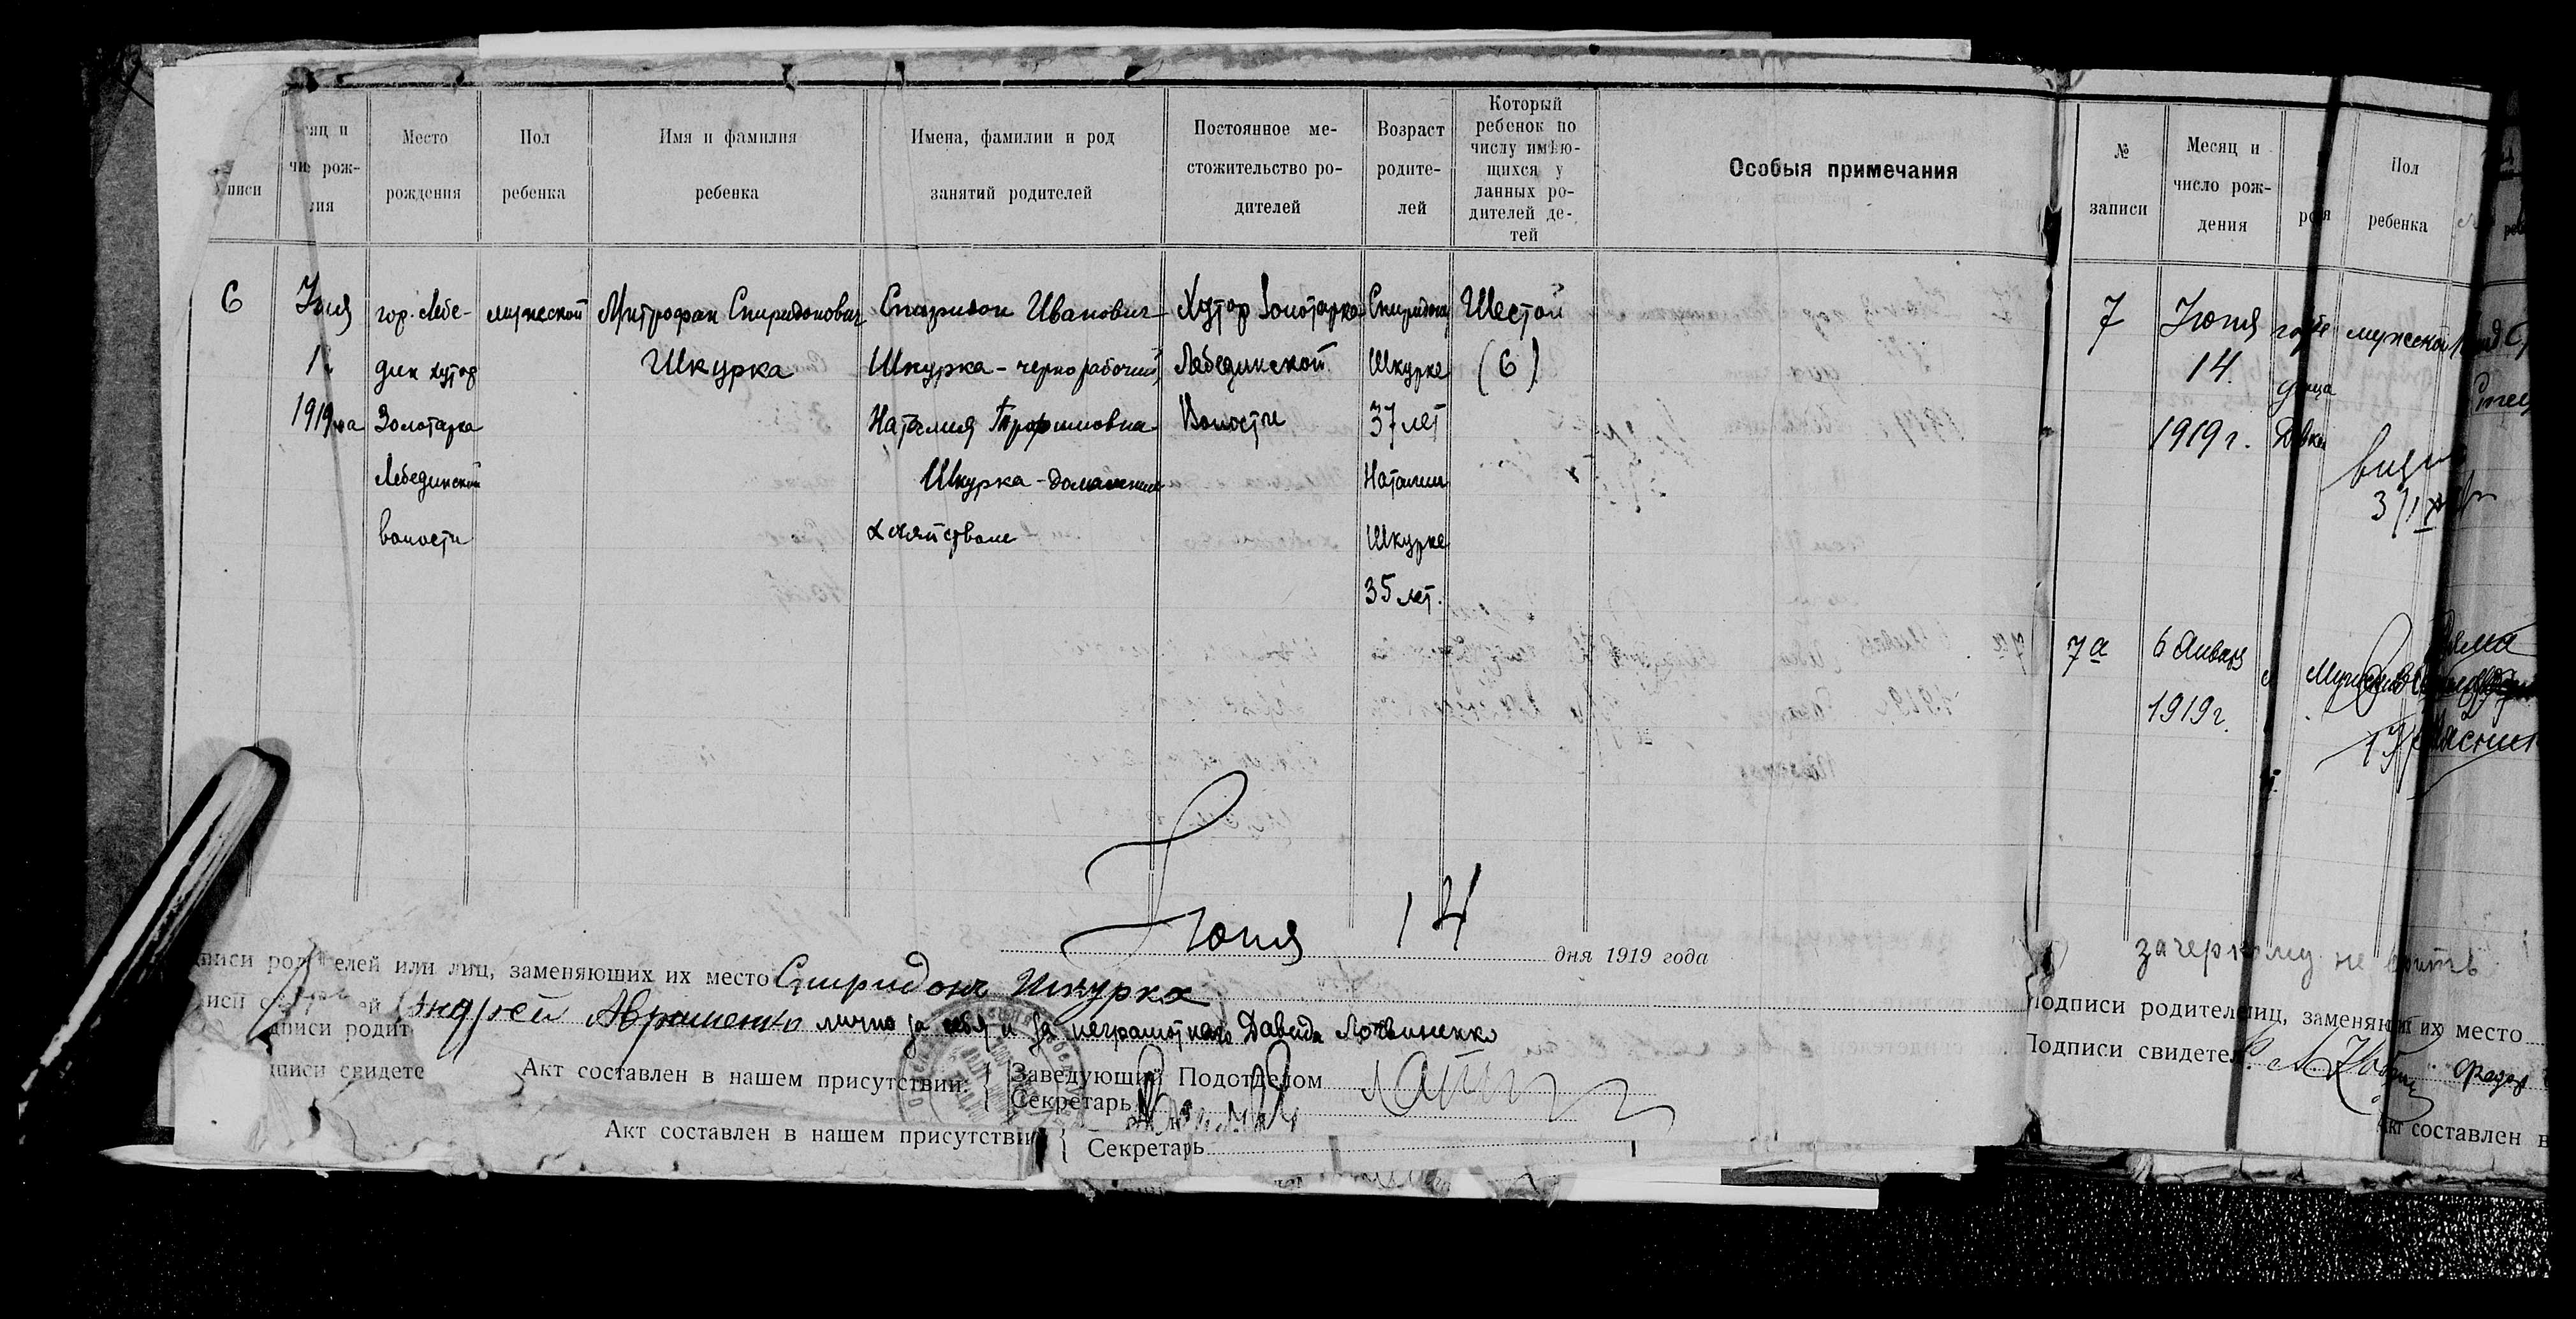 писи
яц и
чи рож-
ия
Место
рождения
Пол
ребенка
Имя и фамилия
ребенка
Имена, фамилии и род
занятий родителей
Постоянное ме-
стожительство ро-
дителей
Возраст
родите-
лей
Который
ребенок по
числу имѣю-
щихся у
данных ро-
дителей де-
тей
Особыя примечания
6
1
1919
гор. Лебе-
дин хутор
Золотарка
Лебединской
волости
мужеской
Митрофан Спиридонович
Шкурка
Спиридон Иванович
Шкурка - чернорабочий,
Наталия Трофимовна
Шкурка - домашнее
Хутор Золотарка
Лебединской
Волости
Спиридону
Шкурке
37 лет
Наталии
Шкурке
35 лет.
Шестой
(6)
Июня 14 дня 1919 года
писи род елей или лиц, заменяющих их место Спиридонъ Шкурка
Андрей Авраменко лично за себя и за неграмотного Давида Логвиненко
писи родит
писи свидете
Акт составлен в нашем присутствии: { Заведующий Подотделом
Секретарь
Акт составлен в нашем присутстви { Секретарь
№
записи
Месяц и
число рож-
дения
Пол
ребенка
7
Июня
14
1919 г.
мужеской
7а
6 Января
1919 г.
зачеркному не верить
Подписи родителе лиц, заменяющ их место
Подписи свидетел Федор
Акт составлен в